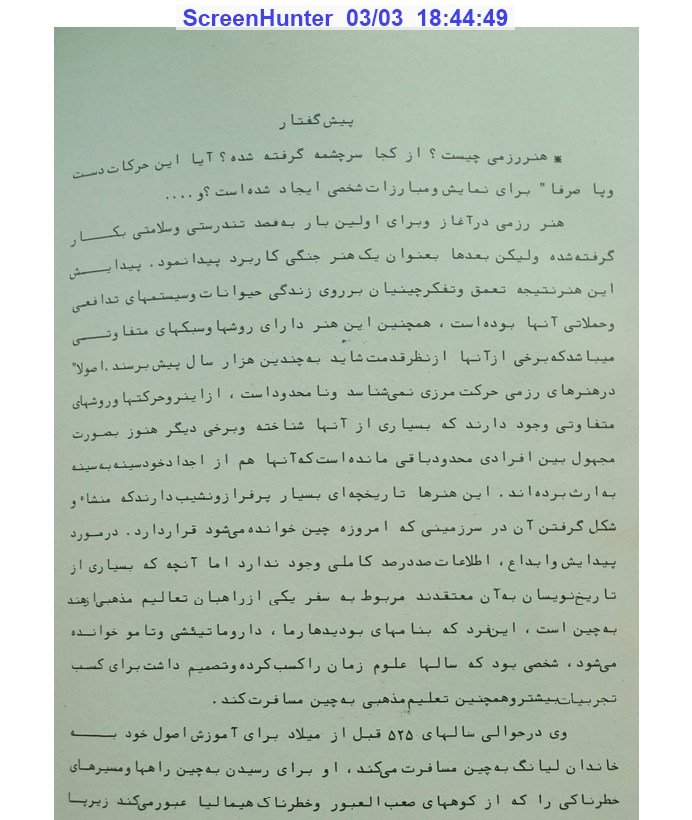 ScreenHunter 03/03 18:44:49
پیش گفتار
* هنررزمی چیست ؟ از کجا سرچشمه گرفته شده؟ آیا این حرکات دست
وپا صرفا" برای نمایش ومبارزات شخصی ایجاد شده است ؟و ....
هنر رزمی درآغاز وبرای اولین بار به‌قصد تندرستی وسلامتی بکـــار
گرفته‌شده ولیکن بعدها بعنوان یک هنر جنگی کاربرد پیدانمود . پیدایـــش
این هنرنتیجه تعمق وتفکرچینیان برروی زندگی حیوانات وسیستمهای تدافعی
وحملاتی آنها بوده است ، همچنین این هنر دارای روشهاوسبکهای متفاوتـــی
میباشدکه‌برخی ازآنها ازنظرقدمت شاید به‌چندین هزار سال پیش برسند .اصولا"
درهنرهای رزمی حرکت مرزی نمی‌شناسد ونامحدوداست ، ازاینروحرکتهاوروشهای
متفاوتی وجود دارند که بسیاری از آنها شناخته وبرخی دیگر هنوز بصورت
مجهول بین افرادی محدودباقی مانده است‌که‌آنها هم از اجدادخودسینه‌به‌سینه
به‌ارث برده‌اند . این هنرها تاریخچه‌ای بسیار پرفرازونشیب دارندکه منشاء و
شکل گرفتن آن در سرزمینی که امروزه چین خوانده‌می‌شود قراردارد . درمـورد
پیدایش وابداع ، اطلاعات صددرصد کاملی وجود ندارد اما آنچه که بسیاری از
تاریخ‌نویسان به‌آن معتقدند مربوط به سفر یکی ازراهبان تعالیم مذهبی‌ازهند
به‌چین است ، این‌فرد که بنامهای بودیدهارما ، داروماتیئشی وتامو خوانـده
می‌شود ، شخصی بود که سالها علوم زمان راکسب‌کرده‌وتصمیم داشت‌برای کسب
تجربیات‌بیشتروهمچنین تعلیم‌مذهبی به‌چین مسافرت کند .
وی درحوالی سالهای ۵۲۵ قبل از میلاد برای آموزش اصول خود بـــه
خاندان لیانگ به‌چین مسافرت می‌کند ، او برای رسیدن به‌چین راههاومسیرهای
خطرناکی را که از کوههای صعب‌العبور وخطرناک هیمالیا عبورمی‌کند زیرپـا